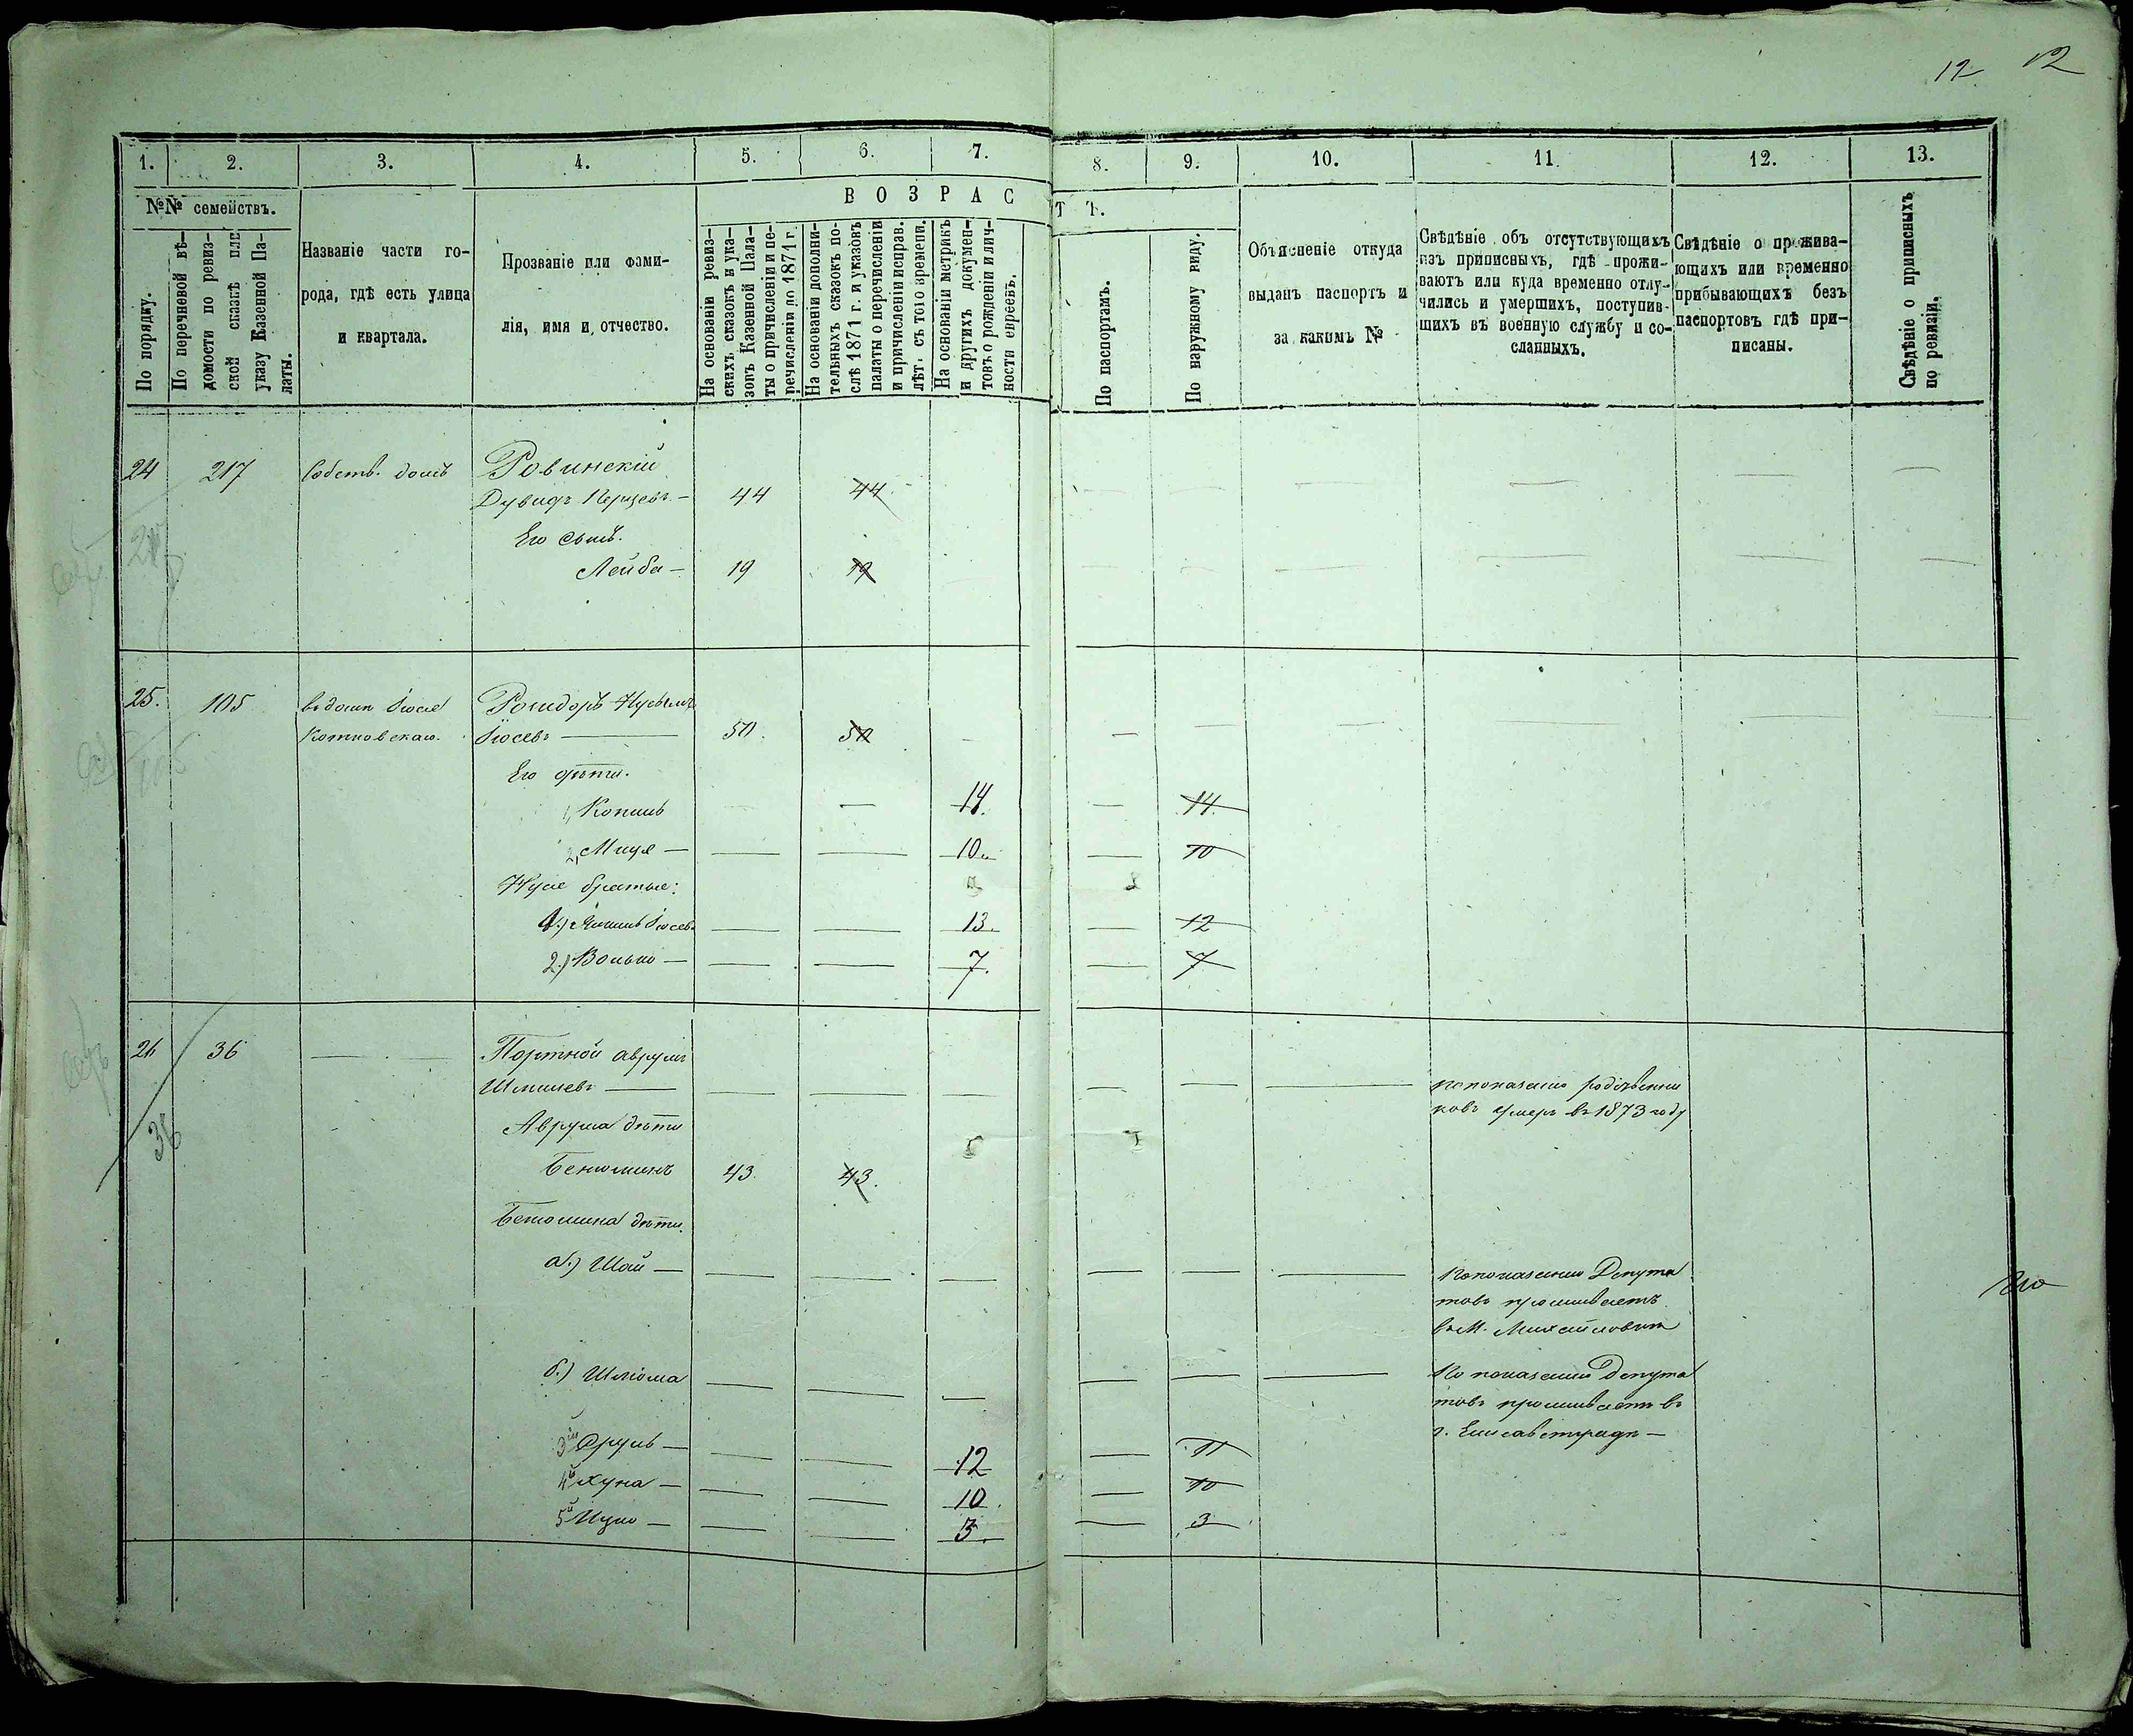 12 12
1. 2. 3. 4. 5. 6. 7. 8. 9. 10. 11. 12. 13.
№№ семействъ.
По порядку.
По перечневой вѣ-
домости по ревиз-
ской сказкѣ или
указу Казенной Па-
латы.
Названіе части го-
рода, гдѣ есть улица
и квартала.
Прозваніе или фами-
лія, имя и отчество.
ВОЗРАСТЪ.
На основаніи ревиз-
скихъ сказокъ и ука-
зовъ Казенной Пала-
ты о причисленіи и пе-
речисленіи до 1871 г.
На основаніи дополни-
тельныхъ сказокъ по-
слѣ 1871 г. и указовъ
палаты о перечисленіи
и причисленіи исправ.
лѣт. съ того времени.
На основаніи метрикъ
и другихъ докумен-
товъ о рожденіи и лич-
ности евреевъ.
По паспортамъ.
По наружному виду.
Объясненіе откуда
выданъ паспортъ и
за какимъ №
Свѣдѣніе объ отсутствующихъ
изъ приписныхъ, гдѣ прожи-
ваютъ или куда временно отлу-
чились и умершихъ, поступив-
шихъ въ военную службу и со-
сланныхъ.
Свѣдѣніе о прожива-
ющихъ или временно
прибывающихъ безъ
паспортовъ гдѣ при-
писаны.
Свѣдѣніе о приписныхъ
по ревизіи.
24 217 Собств. домъ Ровинскій
Дувидъ Перцевъ — 44 44
Его сынъ.
Лейба — 19 19
217
25. 105 въ домѣ Іося Рогидоръ Нусымъ
Котковскаго. Іосевъ — 50. 50
105
Его дѣти.
1, Копиль — — 14. — 14.
2, Мищя — — — 10. — 10
Нуся братья:
1.) Іосевъ — — 13. — 12
2.) Волько — — — 7. — 7
26 36 — Портной Аврумъ
Шмилевъ — — — — — — — по показанію родственни
ковъ умеръ въ 1873 году
36
Аврума дѣти
Беньоминъ 43. 43.
Беньомина дѣти.
а.) Шай — — — — — — — По показанію Депута
товъ проживаетъ
въ М. Михайловкѣ
б.) Шліома — — — — — — По показанію Депута
товъ проживаетъ въ
г. Елисаветградѣ —
3й Сруль — — — 12 — 11
4й Хуна — — — 10. — 10
5й Ицко — — — 3. — 3